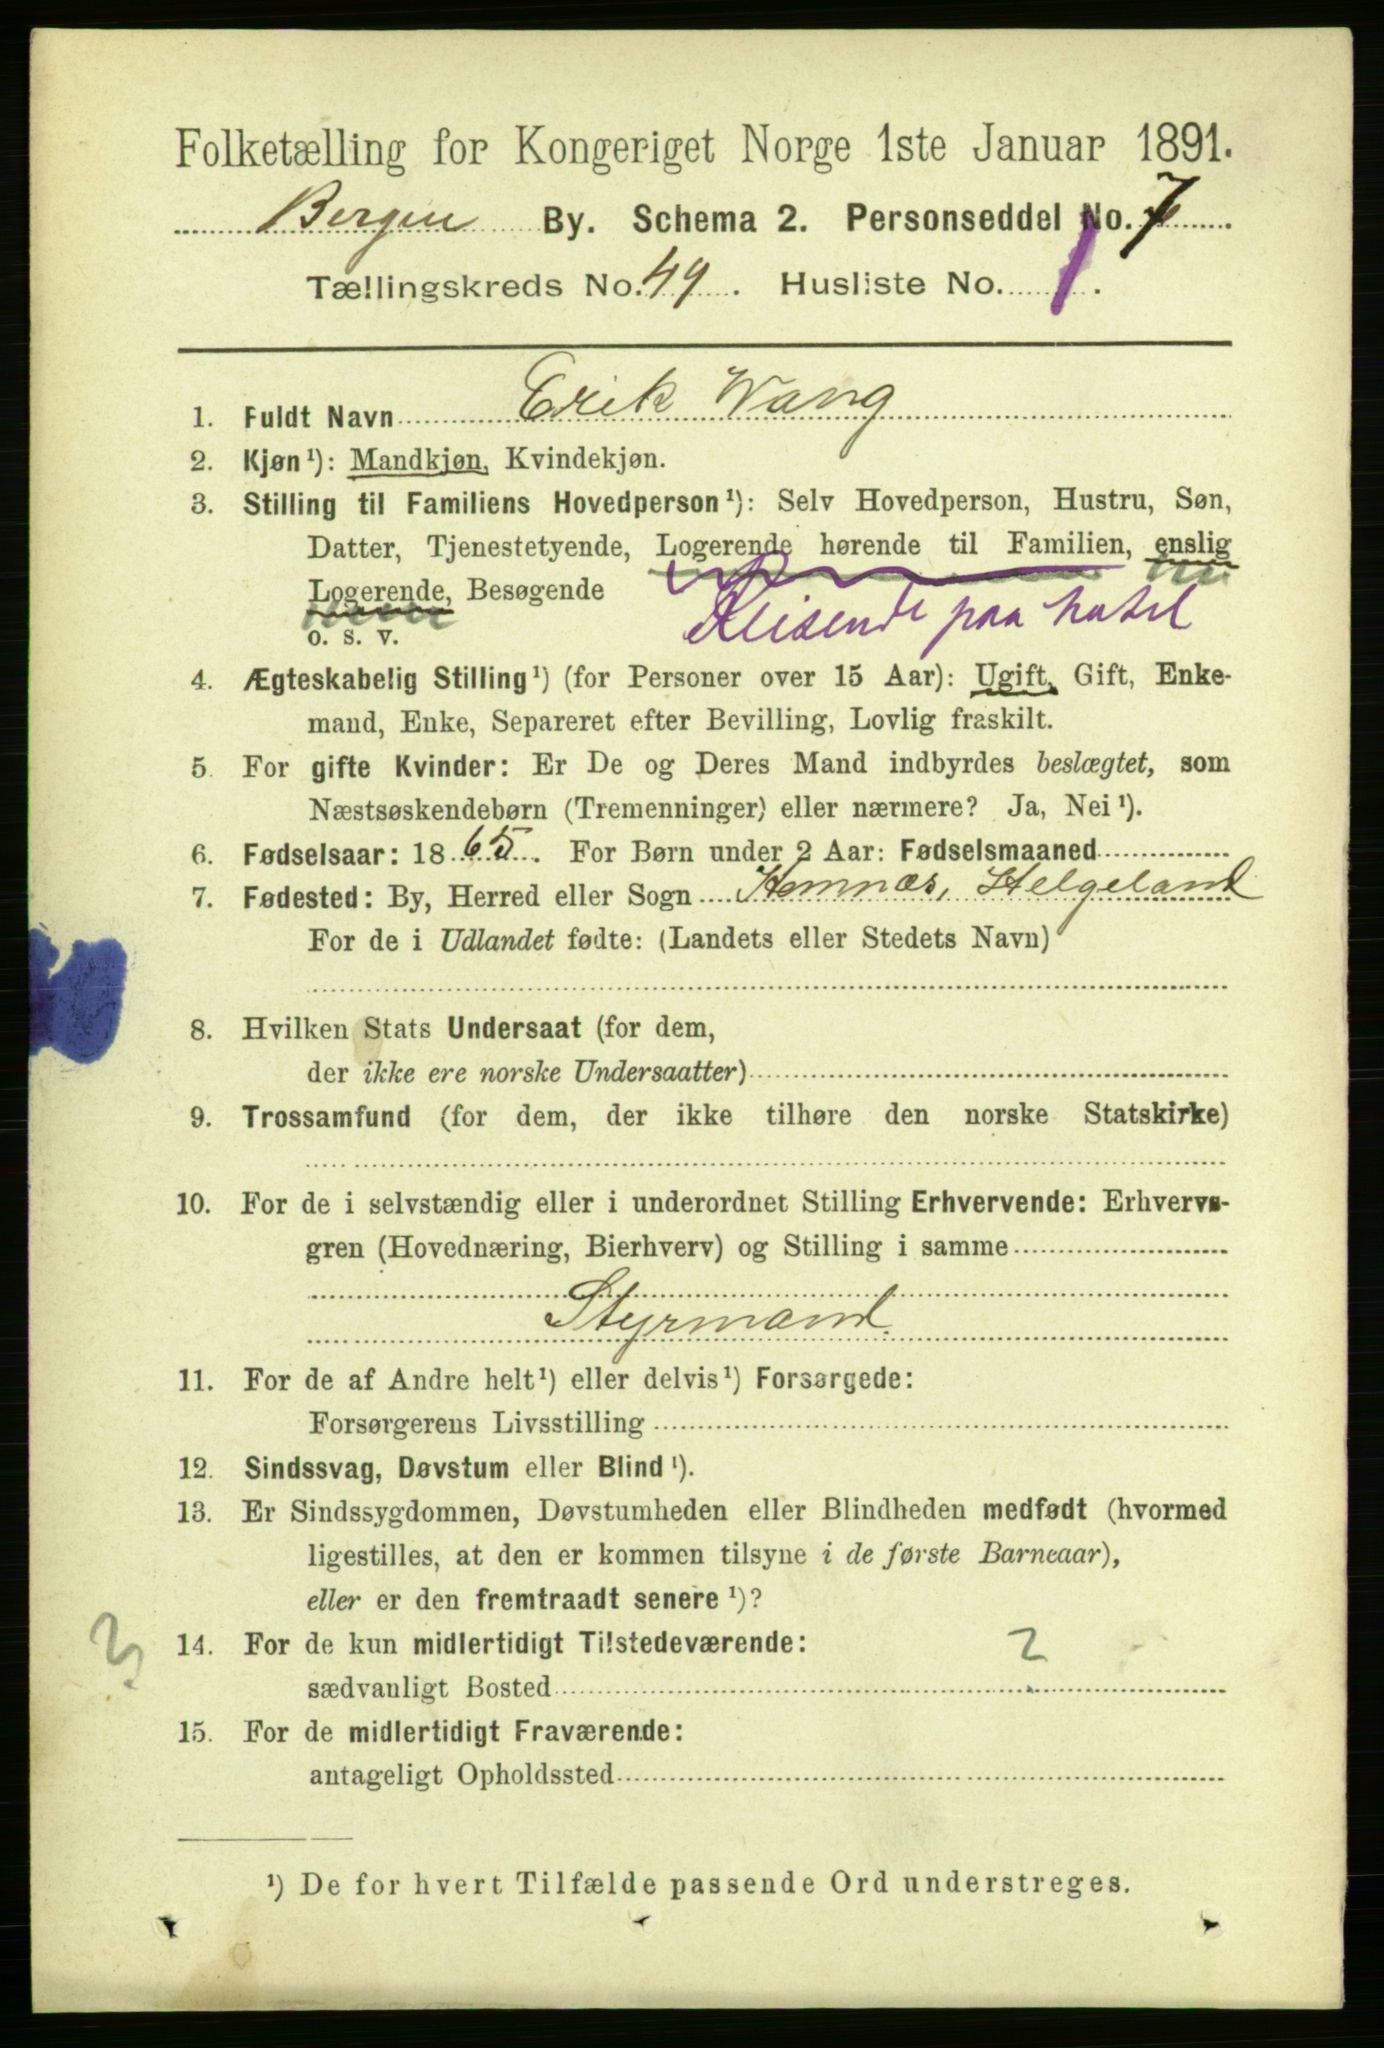 Folketælling for Kongeriget Norge 1ste Januar 1891.
Bergen By. Schema 2. Personseddel No. 7
Tællingskreds No. 49. Husliste No. 1.
1. Fuldt Navn Erik Wang
2. Kjøn¹): Mandkjøn, Kvindekjøn.
3. Stilling til Familiens Hovedperson¹): Selv Hovedperson, Hustru, Søn,
Datter, Tjenestetyende, Logerende hørende til Familien, enslig
Logerende, Besøgende
Reisende paa hotel
o. s. v.
4. Ægteskabelig Stilling¹) (for Personer over 15 Aar): Ugift, Gift, Enke-
mand, Enke, Separeret efter Bevilling, Lovlig fraskilt.
5. For gifte Kvinder: Er De og Deres Mand indbyrdes beslægtet, som
Næstsøskendebørn (Tremenninger) eller nærmere? Ja, Nei¹).
6. Fødselsaar: 1865. For Børn under 2 Aar: Fødselsmaaned
7. Fødested: By, Herred eller Sogn Hemnæs, Helgeland
For de i Udlandet fødte: (Landets eller Stedets Navn)
8. Hvilken Stats Undersaat (for dem,
der ikke ere norske Undersaatter)
9. Trossamfund (for dem, der ikke tilhøre den norske Statskirke)
10. For de i selvstændig eller i underordnet Stilling Erhvervende: Erhvervs-
gren (Hovednæring, Bierhverv) og Stilling i samme
Styrmand.
11. For de af Andre helt¹) eller delvis¹) Forsørgede:
Forsørgerens Livsstilling
12. Sindssvag, Døvstum eller Blind¹).
13. Er Sindssygdommen, Døvstumheden eller Blindheden medfødt (hvormed
ligestilles, at den er kommen tilsyne i de første Barneaar),
eller er den fremtraadt senere¹)?
3
14. For de kun midlertidigt Tilstedeværende: 2
sædvanligt Bosted
15. For de midlertidigt Fraværende:
antageligt Opholdssted
¹) De for hvert Tilfælde passende Ord understreges.